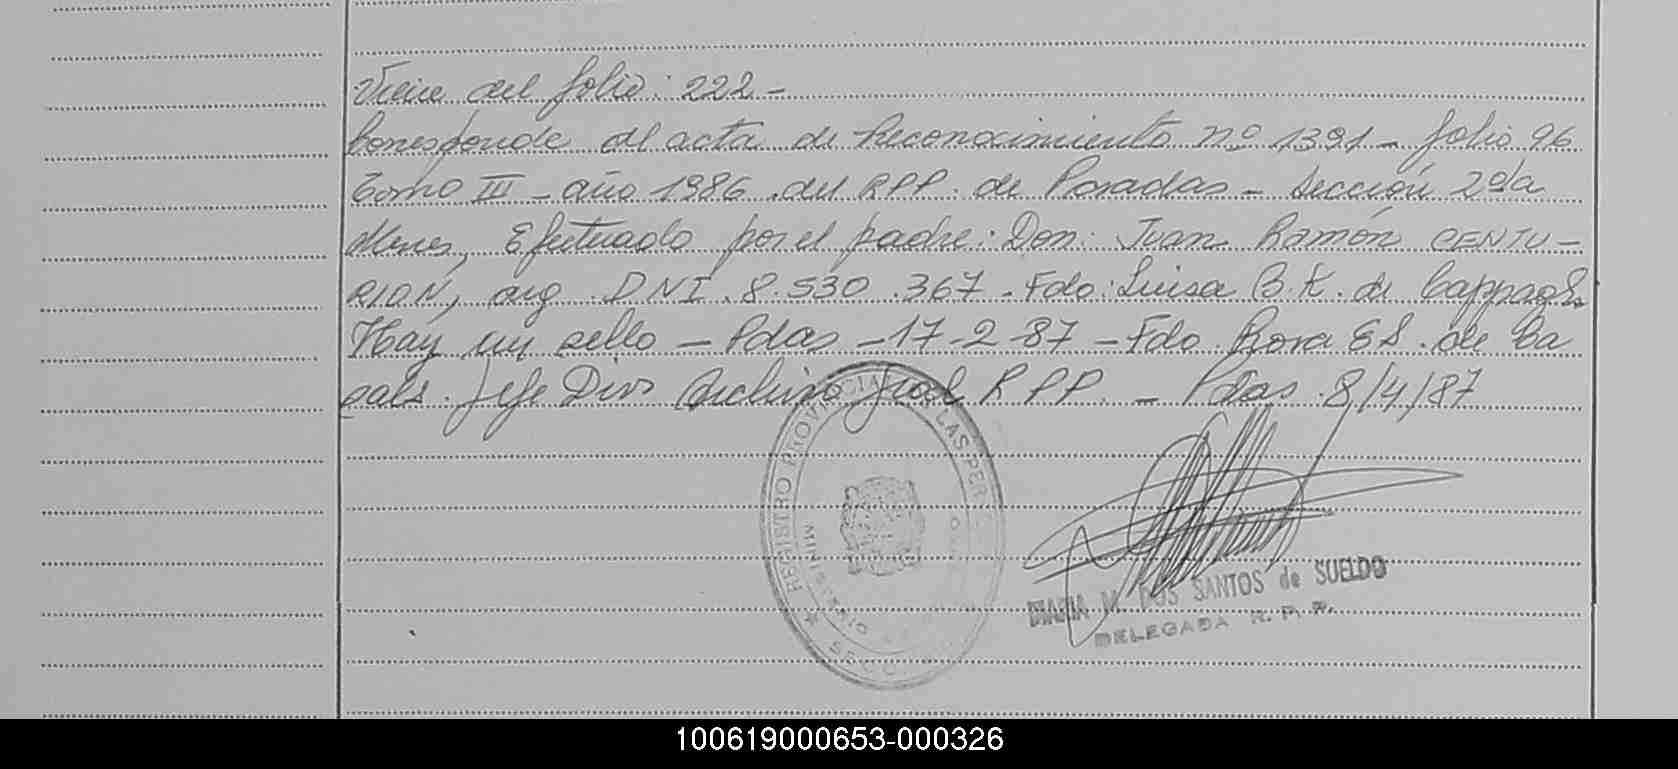 Viene del folio: 222-
Corresponde al acta de Reconocimiento nº 1391- folio 96
Tomo III - año 1986. del RPP. de Posadas - Sección 2da
Mnes, Efectuado por el padre: Don: Juan Ramón CENTU-
RION, arg. DNI. 8.530.367- Fdo: Luisa B.K. de
Hay un sello - Pdas - 17-2-87 - Fdo. Rosa E S. de Ca
sals. Jefe Div Archivo Gral R P P. - Pdas. 8/4/87
REGISTRO PROVINCIAL LAS PER
MINIS
MARIA M. DOS SANTOS de SUELDO
DELEGADA R. P. P.
100619000653-000326